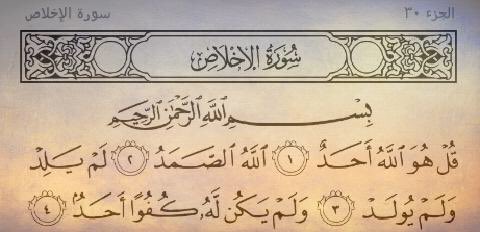 الجزء ٣٠ سورة الإخلاص
سُورَةُ الإِخْلَاصِ
بِسْمِ اللَّهِ الرَّحْمَٰنِ الرَّحِيمِ
قُلْ هُوَ اللَّهُ أَحَدٌ ١ اللَّهُ الصَّمَدُ ٢ لَمْ يَلِدْ
وَلَمْ يُولَدْ ٣ وَلَمْ يَكُن لَّهُ كُفُوًا أَحَدٌ ٤